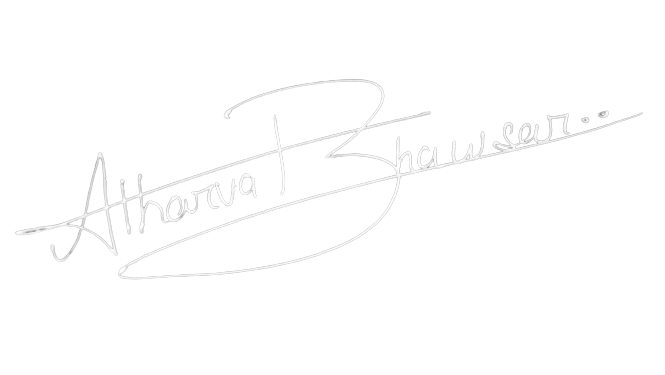 Atharva Bhawsar..